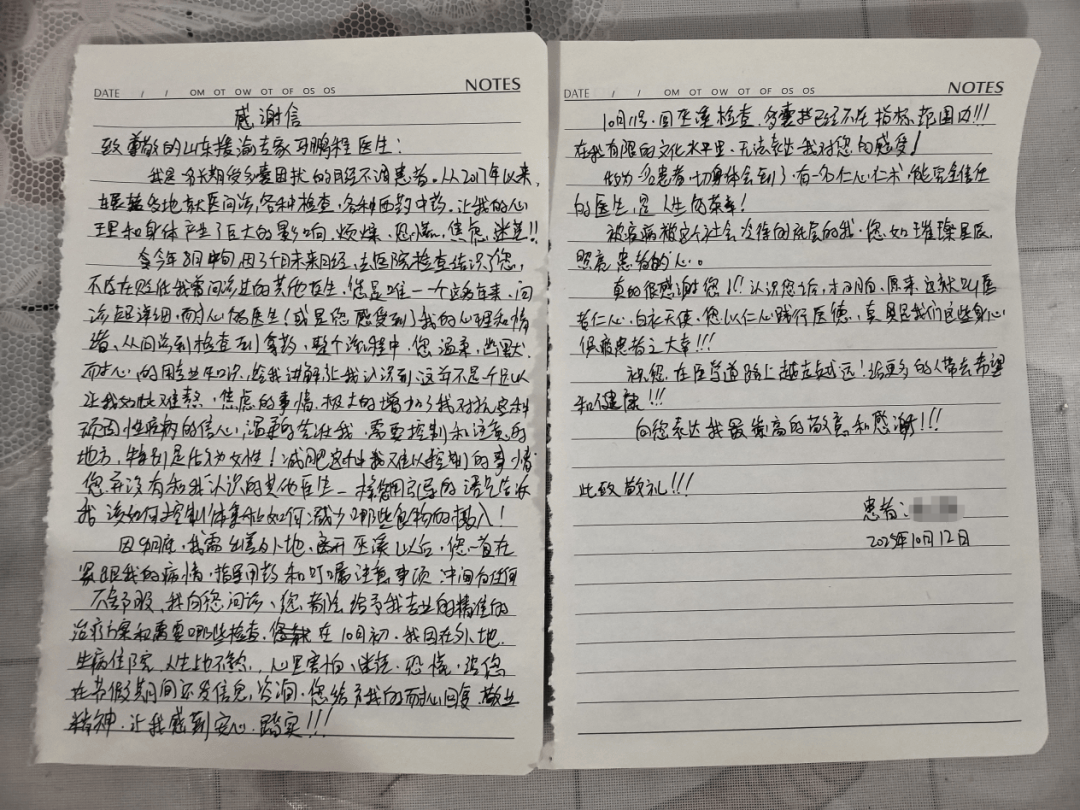 NOTES
DATE / / OM OT OW OT OF OS OS
感谢信
致尊敬的山东援渝专家马鹏程医生：
我是一名长期受多囊困扰的月经不调患者。从2017年以来，
各地就医问诊，各种检查，各种西药中药，让我的心
理和身体产生了巨大的影响，烦燥、恐慌、焦虑、迷茫!!
今年8月中旬，因3个月未来月经，去医院检查结识了您，
不存在贬低我曾问诊过的其他医生，您是唯一一个这多年来，问
诊超详细，耐心的医生（或是您感受到）我的心理和情
绪、从问诊到检查到拿药，整个流程中，您温柔、幽默、
而耐心的用专业知识，给我讲解让我认识到，这并不是个足以
让我如此难熬、焦虑的事情，极大的增加了我对抗这种
顽固性疾病的信心，温柔的告诉我，需要控制和注意的
地方，特别是作为女性！减肥这件我难以控制的事情
您并没有和我认识的其他医生一样用的语气告诉
我该如何控制体重和如何减少哪些食物的摄入！
因，我需出差外地，离开巫溪以后，您一直在
跟我的病情，指导用药和叮嘱注意事项，中间有任何
不舒服，我向您问诊，您都会给予我专业的精准的
治疗方案和需要哪些检查，在10月初，我因在外地
生病住院，人生地不熟，心里害怕、迷茫、恐慌，给您
在节假期间还发信息，咨询，您给予我的耐心回复，敬业
精神，让我感到安心、踏实!!!
NOTES
DATE / / OM OT OW OT OF OS OS
10月11号，回巫溪检查，多囊我已经不在指标范围内!!!
在我有限的文化水平里，无法表达我对您的感受！
作为一名患者，切身体会到了，有一名仁心仁术，能完全信任
的医生，是人生的荣幸！
被疾病被这个社会冷待的底层的我，您如璀璨星辰，
照亮患者的心。
真的很感谢您!!!认识您后，才明白，原来这就叫医
者仁心，白衣天使，您以仁心践行医德，真是我们这些身心
俱疲患者之大幸!!!
祝您，在医学道路上越走越远！给更多的人带去希望
和健康!!!
向您表达我最崇高的敬意和感谢!!!
此致敬礼!!!
患者：
2025年10月12日